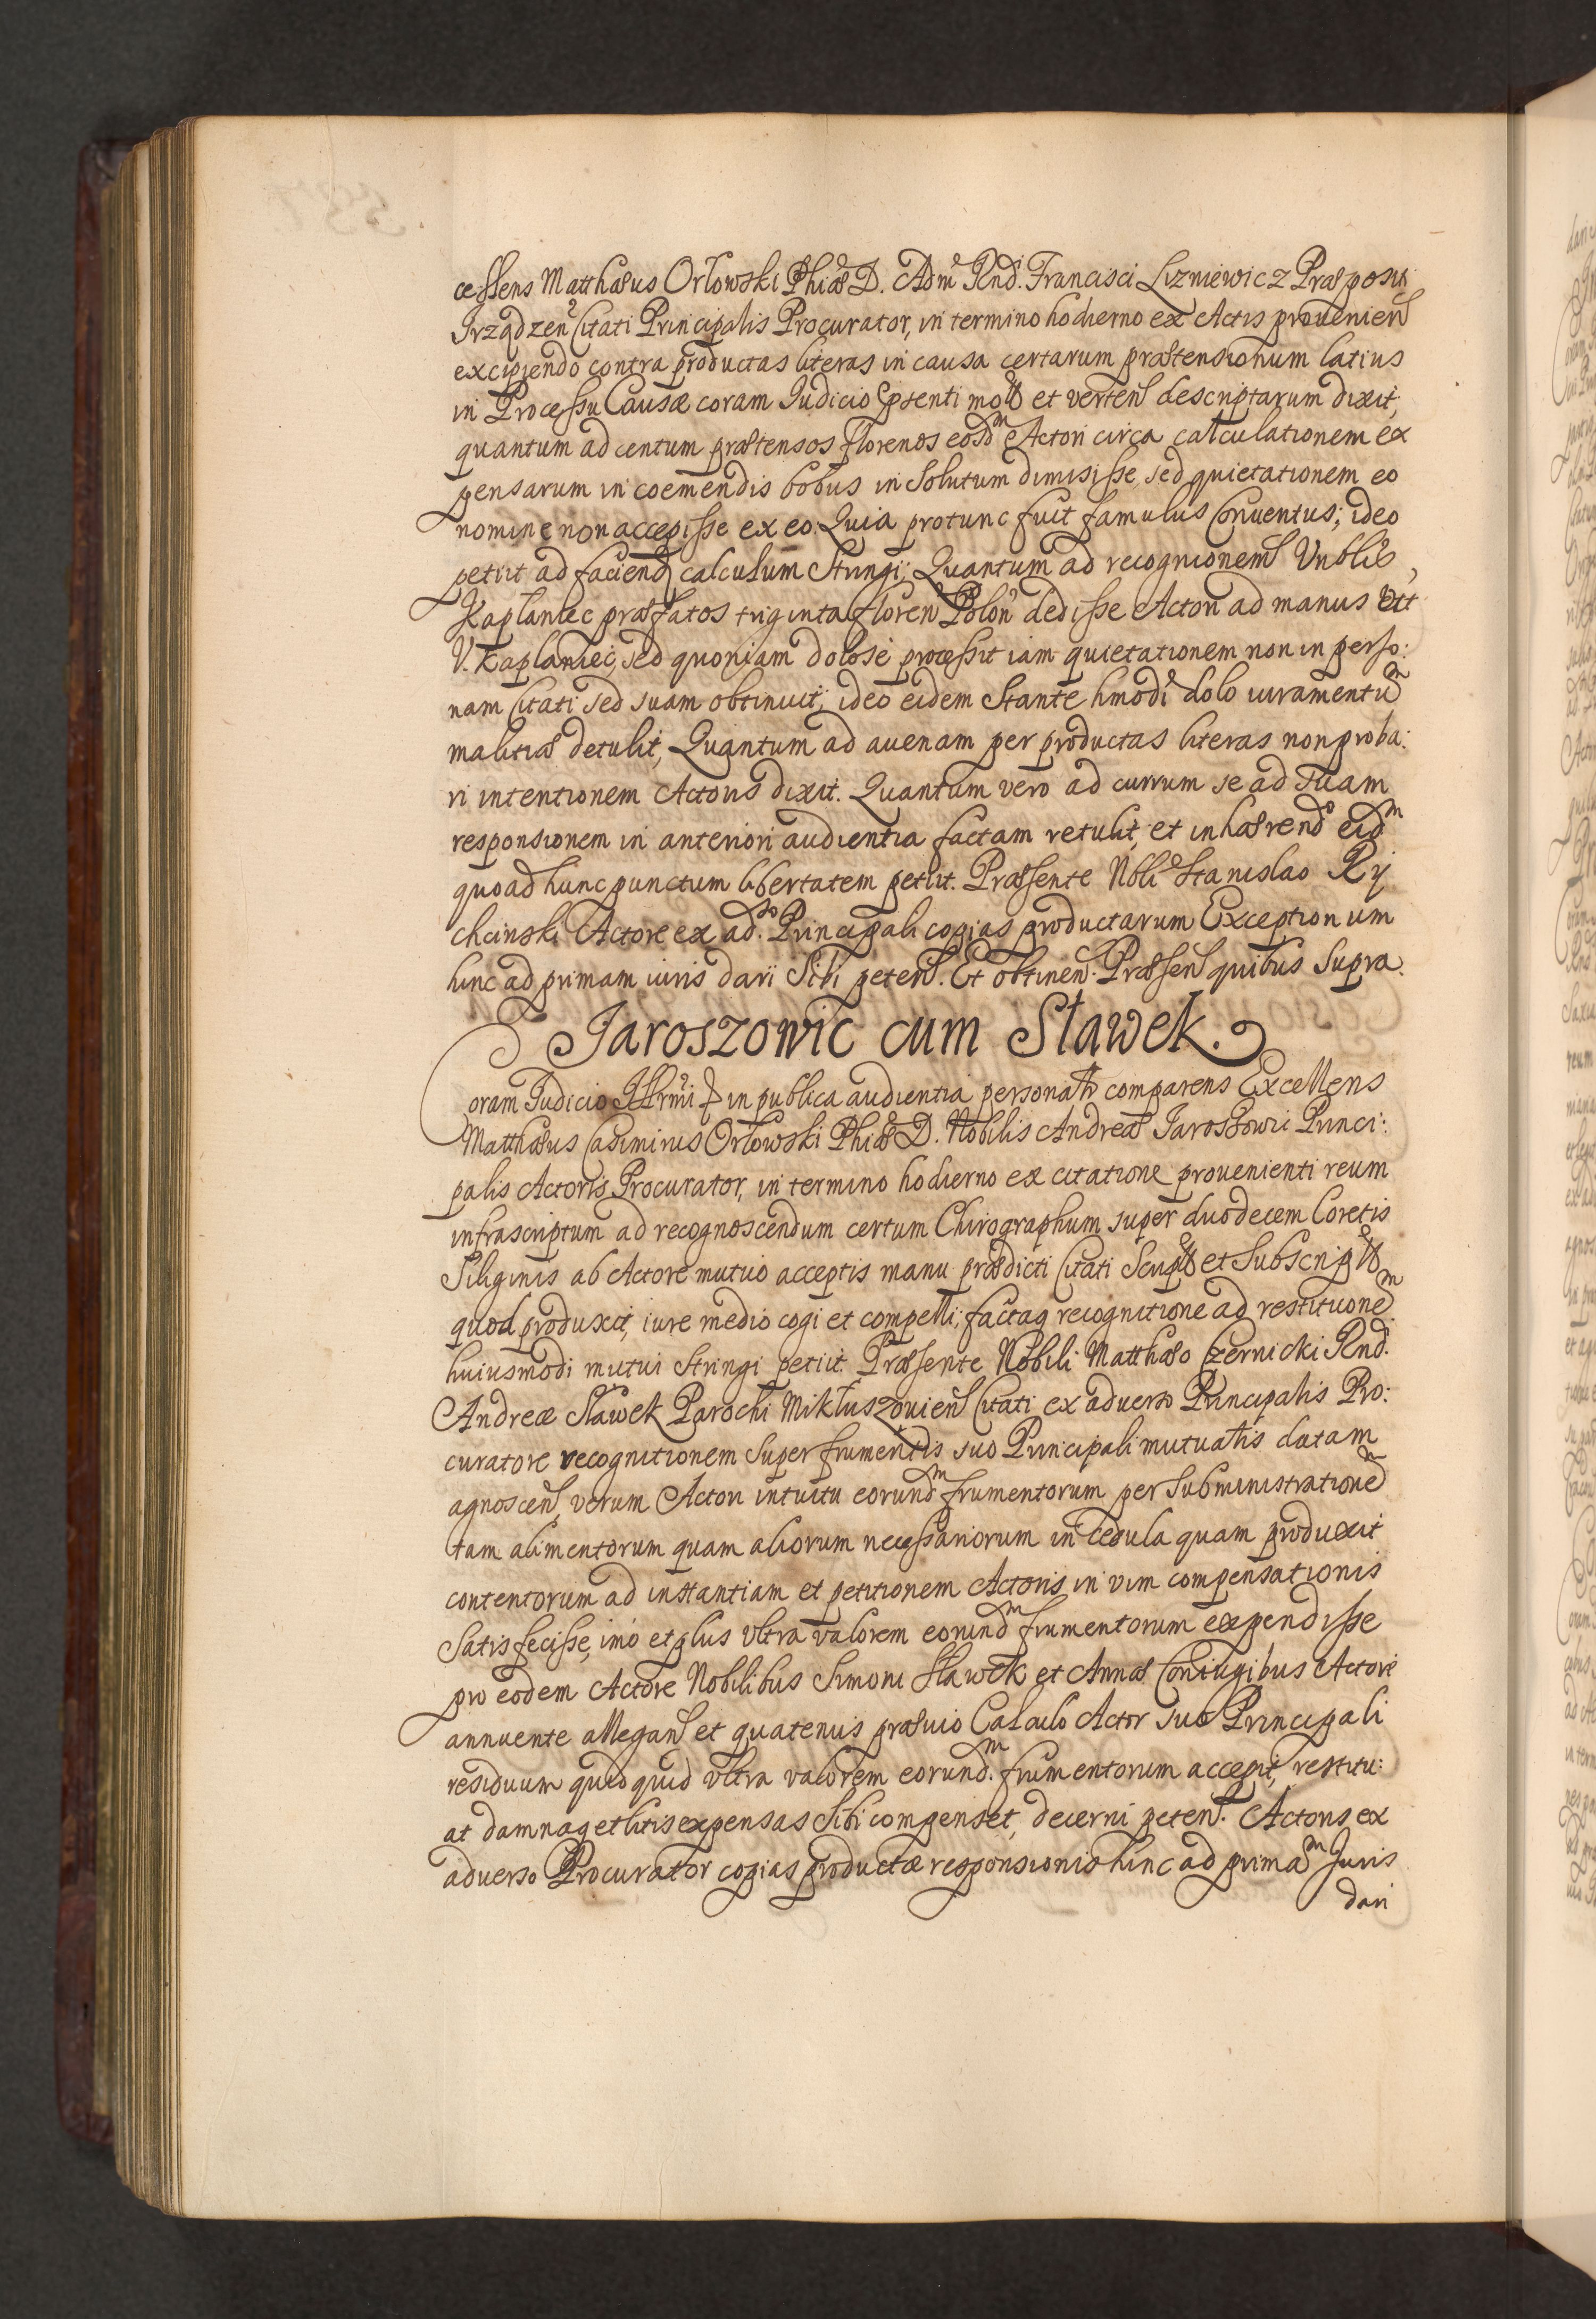 cessens Matthæus Orłowski Phiæ D. Adm Rnd. Francisci Lizniewicz Præposiţi
Irządzeń Citati Principalis Procurator, in termino hodierno ex Actis provenień
excipiendo contra productas literas in causa certarum prætensionum latius
in Processu Causæ coram Iudicio pręsenti et verteń descriptarum dixit,
quantum ad centum prætensos florenos eosdm Actori circa calculationem ex
pensarum in coemendis bobus in Solutum dimisisse, sed quietationem eo
nomine non accepisse ex eo. Quia protunc fuit famulus Conventus; ideo
petiit ad faciend calculum Stringi; Quantum ad recognionem
Kaplaniec præfatos triginta floren Polon dedisse Actori ad manus
V. Kaplaniec, sed quoniam dolose processit iam quietationem non in perso:
nam Citati sed suam obtinuit, ideo eidem Stante hmodi dolo iuramentū
malitiæ detulit, Quantum ad auenam per productas literas non proba:
ri intentionem Actoris dixit. Quantum vero ad currum se ad suam
responsionem in anteriori audientia factam retulit, et inhærendo eidm
quoad hunc punctum libertatem petiit. Præsente Nbli Stanislao Ry
chcinski Actore ex ad.so Principali copias productarum Exceptionum
hinc ad primam iuris dari Sibi peteń. Et obtineń. Præsen quibus Supra.
Jaroszowic cum Sławek.
Coram Iudicio in publica audientia personalr comparens Excellens
Matthæus Casimirus Orłowski Phiæ D. Nobilis Andreæ Jaroszowic Princi:
palis Actoris Procurator, in termino hodierno ex citatione provenienti reum
infrascriptum ad recognoscendum certum Chirographum super duodecem Coretis
Siliginis ab Actore mutuo acceptis manu prædicti Citati Script et Subscript
quod produxit, iure medio cogi et compelli, factaq recognitione ad restitutionem
huiusmodi mutui Stringi petiit. Præsente Nobili Matthæo Czernicki Rnd.
Andreæ Sławek Parochi Mikłuszovień Citati ex adverso Principalis Pro:
curatore recognitionem Super frumentis suo Principali mutuatis datam
agnosceń, verum Actori intuitu eorundm frumentorum per Subministrationem
tam alimentorum quam aliorum necessariorum in cedula quam produxit
contentorum ad instantiam et petitionem Actoris in vim compensationis
Satisfecisse, imo et plus vltra valorem eorundm frumentorum expendisse
pro eodem Actore Nobilibus Simoni Sławek et Annæ Coniugibus Actore
annuente allegań et quatenus prævio Calculo Actor suo Principali
residuum quidquid vltra valorem eorundm. frumentorum accepit, restitu:
at damnaq et litis expensas Sibi compenset, decerni peteń. Actoris ex
adverso Procurator copias productæ responsionis hinc ad primam Juris
dari